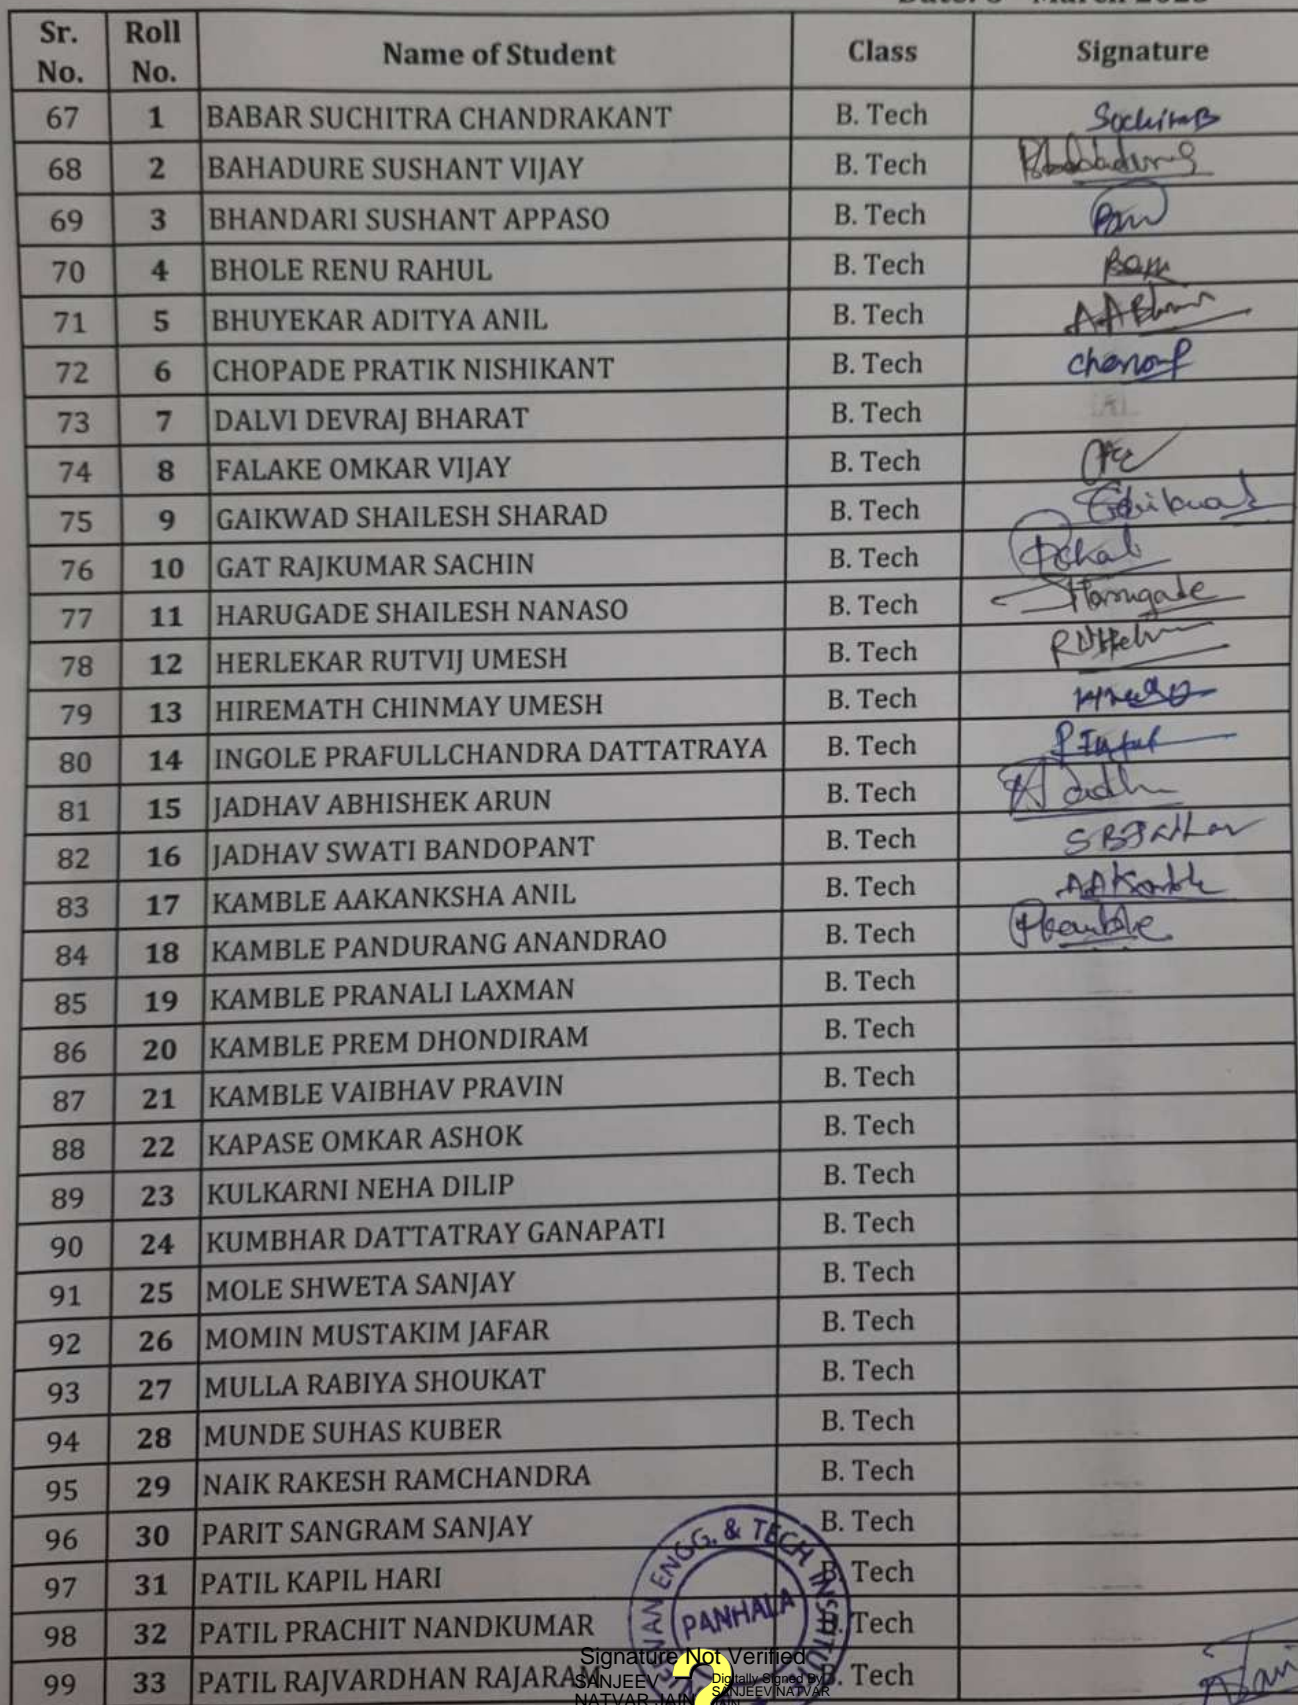 Sr. No. Roll No. Name of Student Class Signature
67 1 BABAR SUCHITRA CHANDRAKANT B. Tech
68 2 BAHADURE SUSHANT VIJAY B. Tech
69 3 BHANDARI SUSHANT APPASO B. Tech
70 4 BHOLE RENU RAHUL B. Tech
71 5 BHUYEKAR ADITYA ANIL B. Tech
72 6 CHOPADE PRATIK NISHIKANT B. Tech
73 7 DALVI DEVRAJ BHARAT B. Tech
74 8 FALAKE OMKAR VIJAY B. Tech
75 9 GAIKWAD SHAILESH SHARAD B. Tech
76 10 GAT RAJKUMAR SACHIN B. Tech
77 11 HARUGADE SHAILESH NANASO B. Tech Harugade
78 12 HERLEKAR RUTVIJ UMESH B. Tech
79 13 HIREMATH CHINMAY UMESH B. Tech
80 14 INGOLE PRAFULLCHANDRA DATTATRAYA B. Tech
81 15 JADHAV ABHISHEK ARUN B. Tech
82 16 JADHAV SWATI BANDOPANT B. Tech
83 17 KAMBLE AAKANKSHA ANIL B. Tech
84 18 KAMBLE PANDURANG ANANDRAO B. Tech
85 19 KAMBLE PRANALI LAXMAN B. Tech
86 20 KAMBLE PREM DHONDIRAM B. Tech
87 21 KAMBLE VAIBHAV PRAVIN B. Tech
88 22 KAPASE OMKAR ASHOK B. Tech
89 23 KULKARNI NEHA DILIP B. Tech
90 24 KUMBHAR DATTATRAY GANAPATI B. Tech
91 25 MOLE SHWETA SANJAY B. Tech
92 26 MOMIN MUSTAKIM JAFAR B. Tech
93 27 MULLA RABIYA SHOUKAT B. Tech
94 28 MUNDE SUHAS KUBER B. Tech
95 29 NAIK RAKESH RAMCHANDRA B. Tech
96 30 PARIT SANGRAM SANJAY B. Tech
97 31 PATIL KAPIL HARI B. Tech
98 32 PATIL PRACHIT NANDKUMAR B. Tech
99 33 PATIL RAJVARDHAN RAJARAM B. Tech
ENGG. & TECH
PANHALA
Signature Not Verified
SANJEEV
NATVAR JAIN
Digitally Signed By
SANJEEV NATVAR